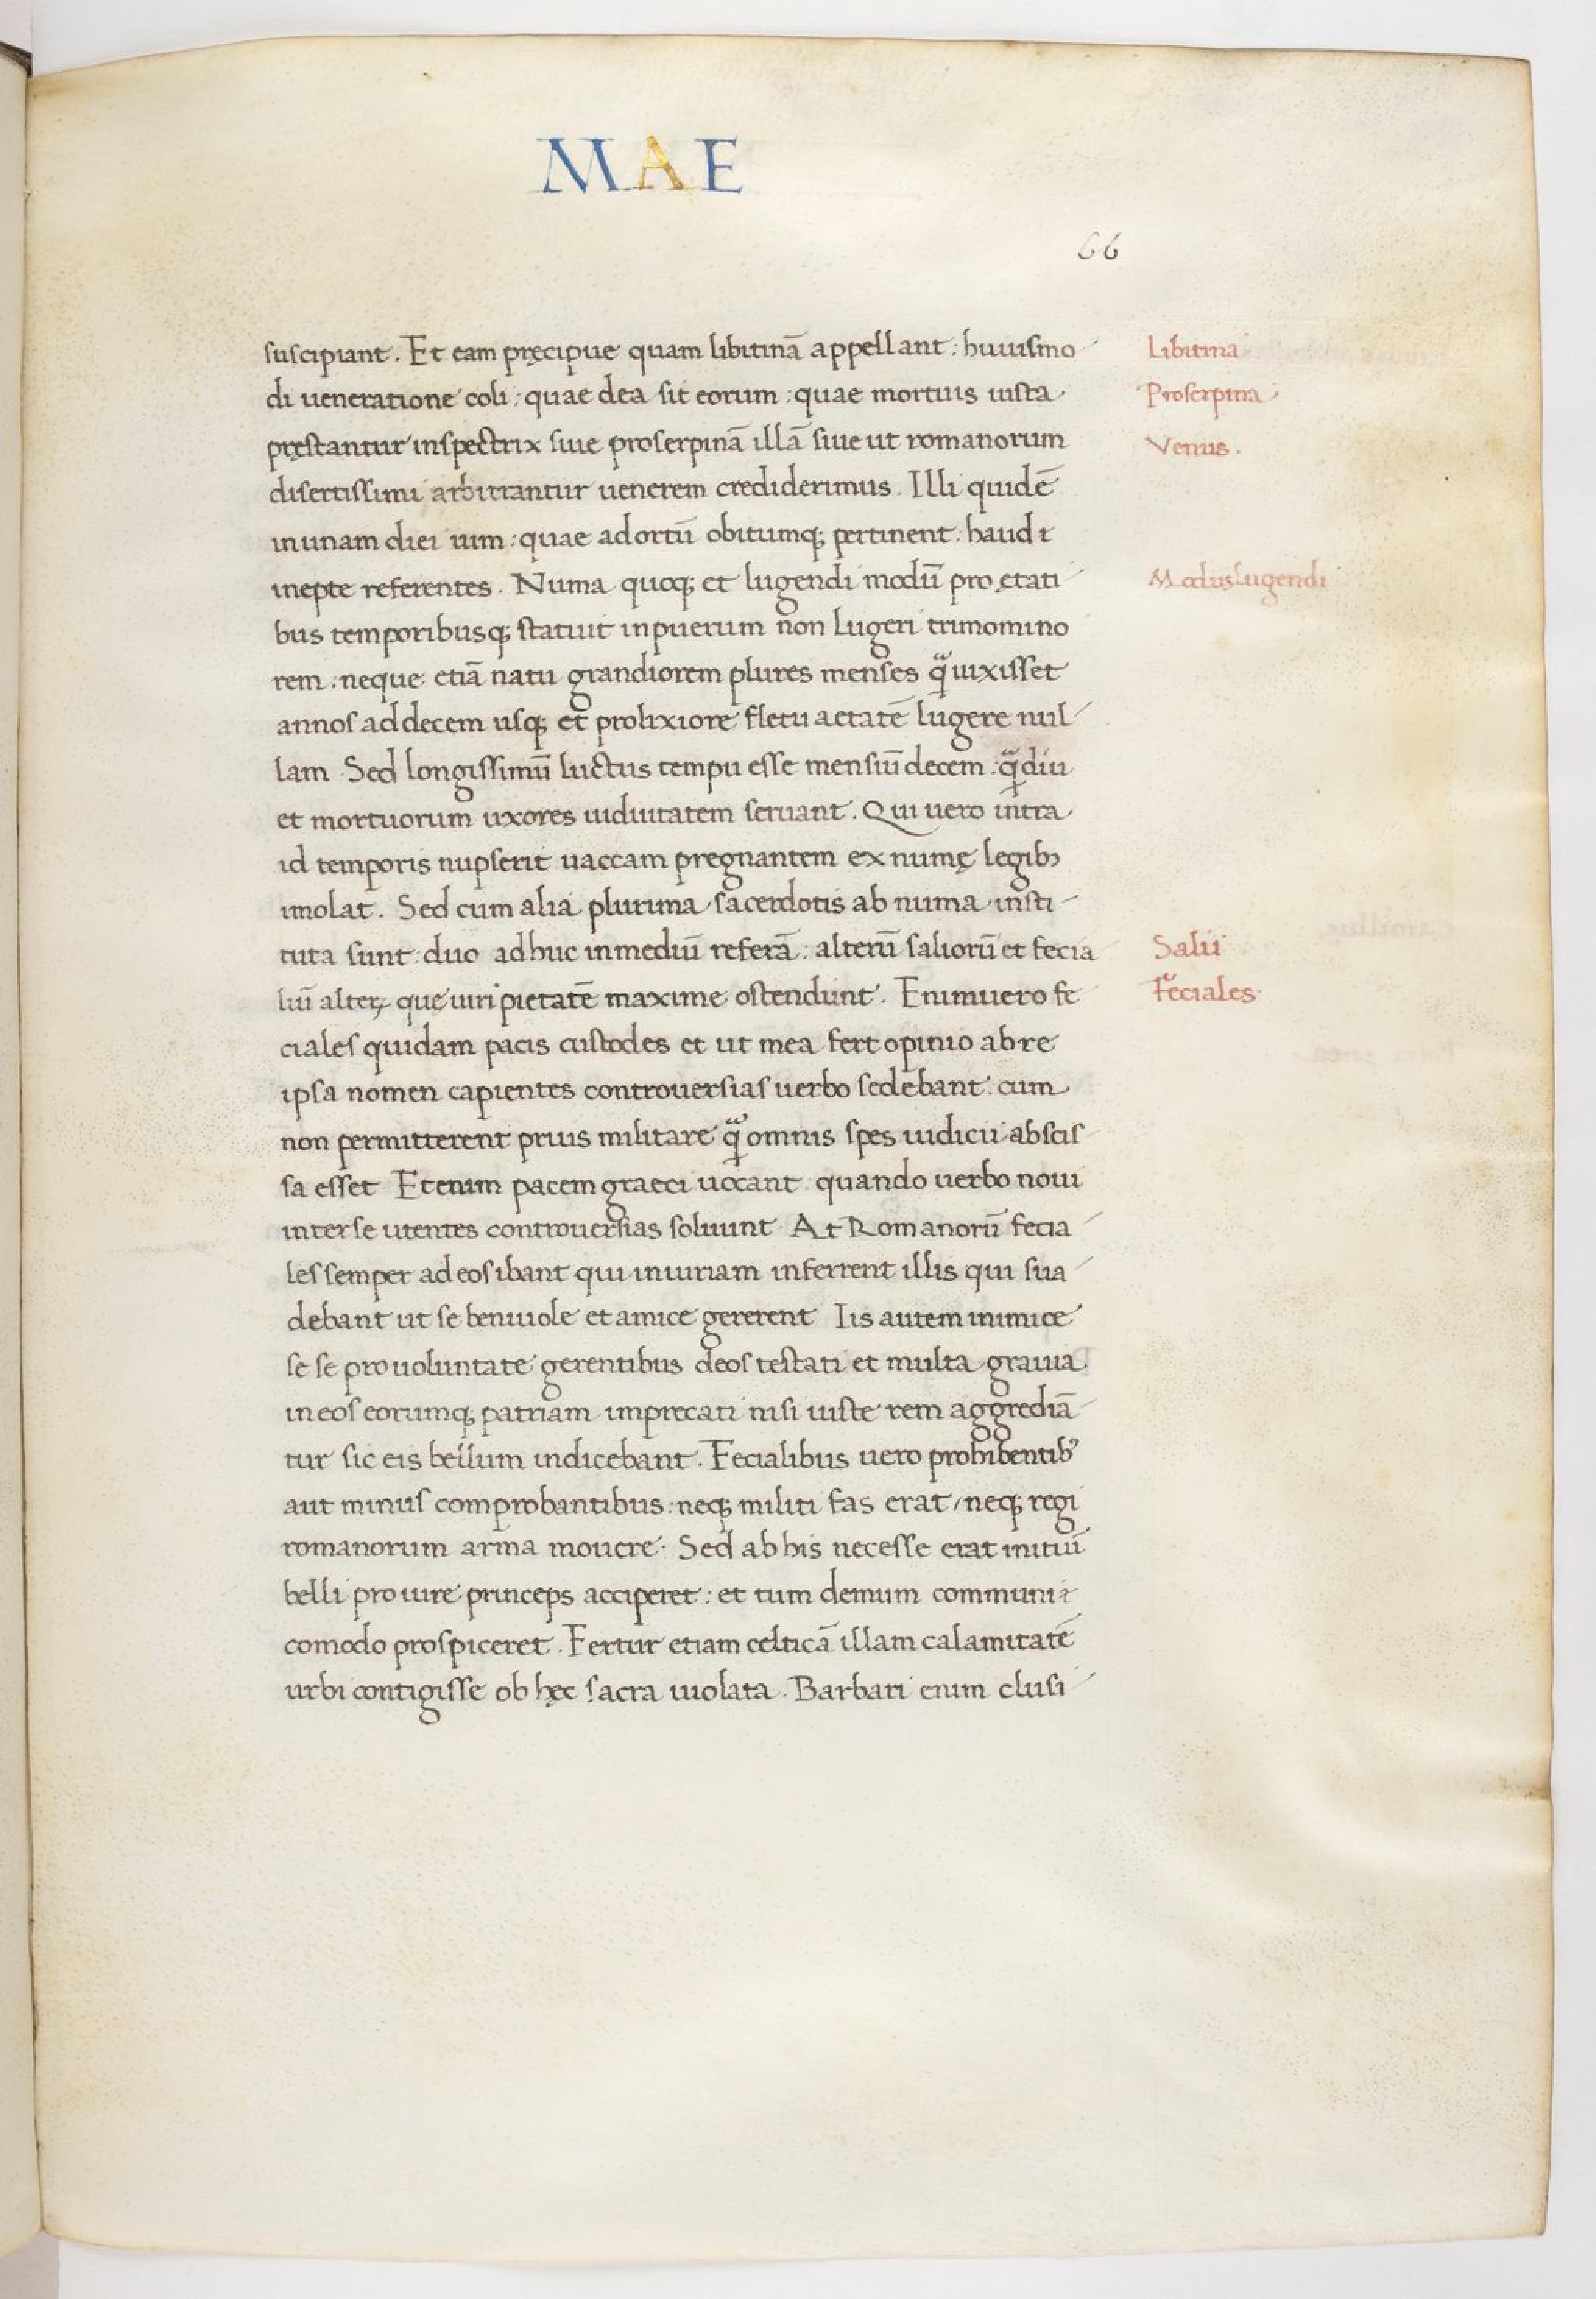 MAE
66
suscipiant. Et eam pręcipue quam libitinā appellant: huiusmo
di ueneratione coli: quae dea sit eorum: quae mortuis iusta
pręstantur inspectrix siue proserpinā illā siue ut romanorum
disertissimi arbitrantur uenerem crediderimus. Illi quidē
in unam diei uim: quae ad ortū obitumq; pertinent: haud
inepte referentes. Numa quoq; et lugendi modū pro ętati
bus temporibusq; statuit in puerum non lugeri trimo mino
rem: neque etiā natu grandiorem plures menses q̃ uixisset
annos ad decem usq; et prolixiore fletu aetatē lugere nul
lam Sed longissimū luctus tempu esse mensiū decem: q̃diu
et mortuorum uxores uiduitatem seruant. Qui uero intra
id temporis nupserit uaccam pregnantem ex numę legibꝫ
imolat. Sed cum alia plurima sacerdotis ab numa insti
tuta sunt: duo adhuc in mediū referā: alterū saliorū et fecia
liū alteꝝ quę uiri pietatē maxime ostendunt. Enimuero fe
ciales quidam pacis custodes et ut mea fert opinio ab re
ipsa nomen capientes controuersias uerbo sedebant: cum
non permitterent prius militare q̃ omnis spes iudicii abscis
sa esset Etenim pacem graeci uocant quando uerbo noui
inter se utentes controuersias soluunt At Romanorū fecia
les semper ad eos ibant qui iniuriam inferrent illis qui sua
debant ut se beniuole et amice gererent Iis autem inimice
se se pro uoluntate gerentibus deos testati et multa grauia
in eos eorumq; patriam imprecati nisi iuste rem aggrediā
tur sic eis bellum indicebant. Fecialibus uero prohibentibꝰ
aut minus comprobantibus: neq; militi fas erat / neq; regi
romanorum arma mouere. Sed ab his necesse erat initiū
belli pro iure princeps acciperet: et tum demum communi
comodo prospiceret. Fertur etiam celticā illam calamitatē
urbi contigisse ob hęc sacra uiolata. Barbari enim clusi
Libitina
Proserpina
Venus.
Modus lugendi
Salii
Feciales